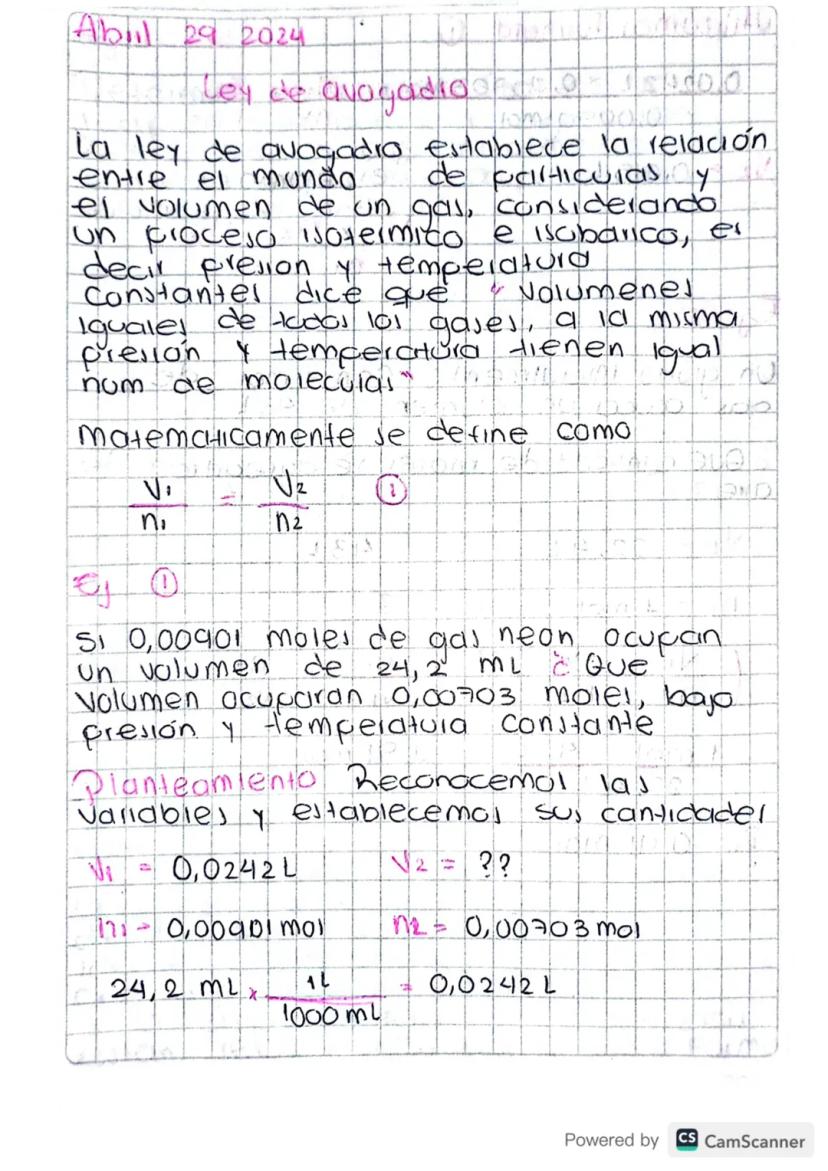 Abril 29 2024
Ley de avogadro
La ley de avogadro establece la relación
entre el mundo de particulas y
el volumen de un gas, considerando
un proceso isotermico e isobarico, es
decir presion y temperatura
constantes dice que "volumenes
iguales de todos los gases, a la misma
presión y temperatura tienen igual
num de moleculas"
Matematicamente se define como
V1 / n1 = V2 / n2 ①
Ej ①
Si 0,00901 moles de gas neon ocupan
un volumen de 24,2 mL ¿ Que
volumen ocuparan 0,00703 moles, bajo
presión y temperatura constante
Planteamiento Reconocemos las
variables y establecemos sus cantidades
V1 = 0,0242 L V2 = ??
n1 = 0,00901 mol n2 = 0,00703 mol
24,2 mL x 1L / 1000 mL = 0,0242 L
Powered by CS CamScanner